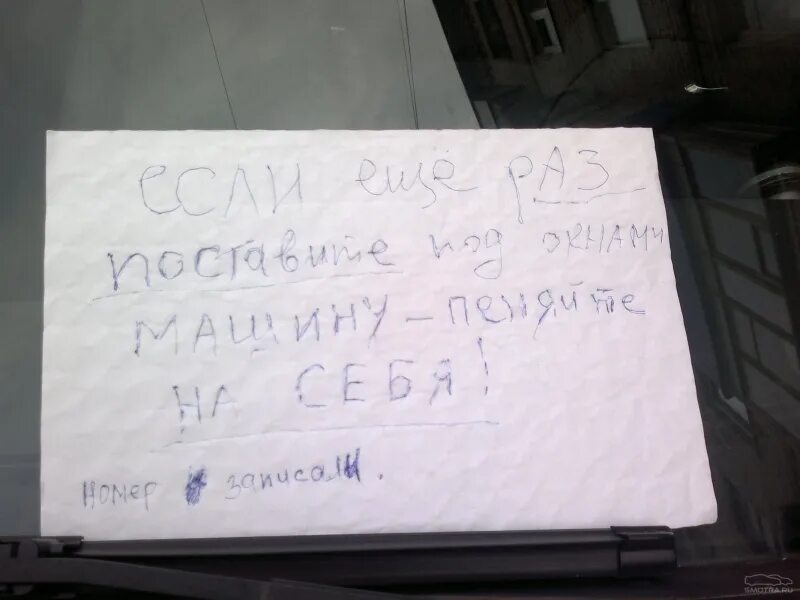 если ещё рАЗ
поставите под окнами
МАШИНУ – пеняйте
НА СЕБЯ!
номер записали.
SMOTRA.RU